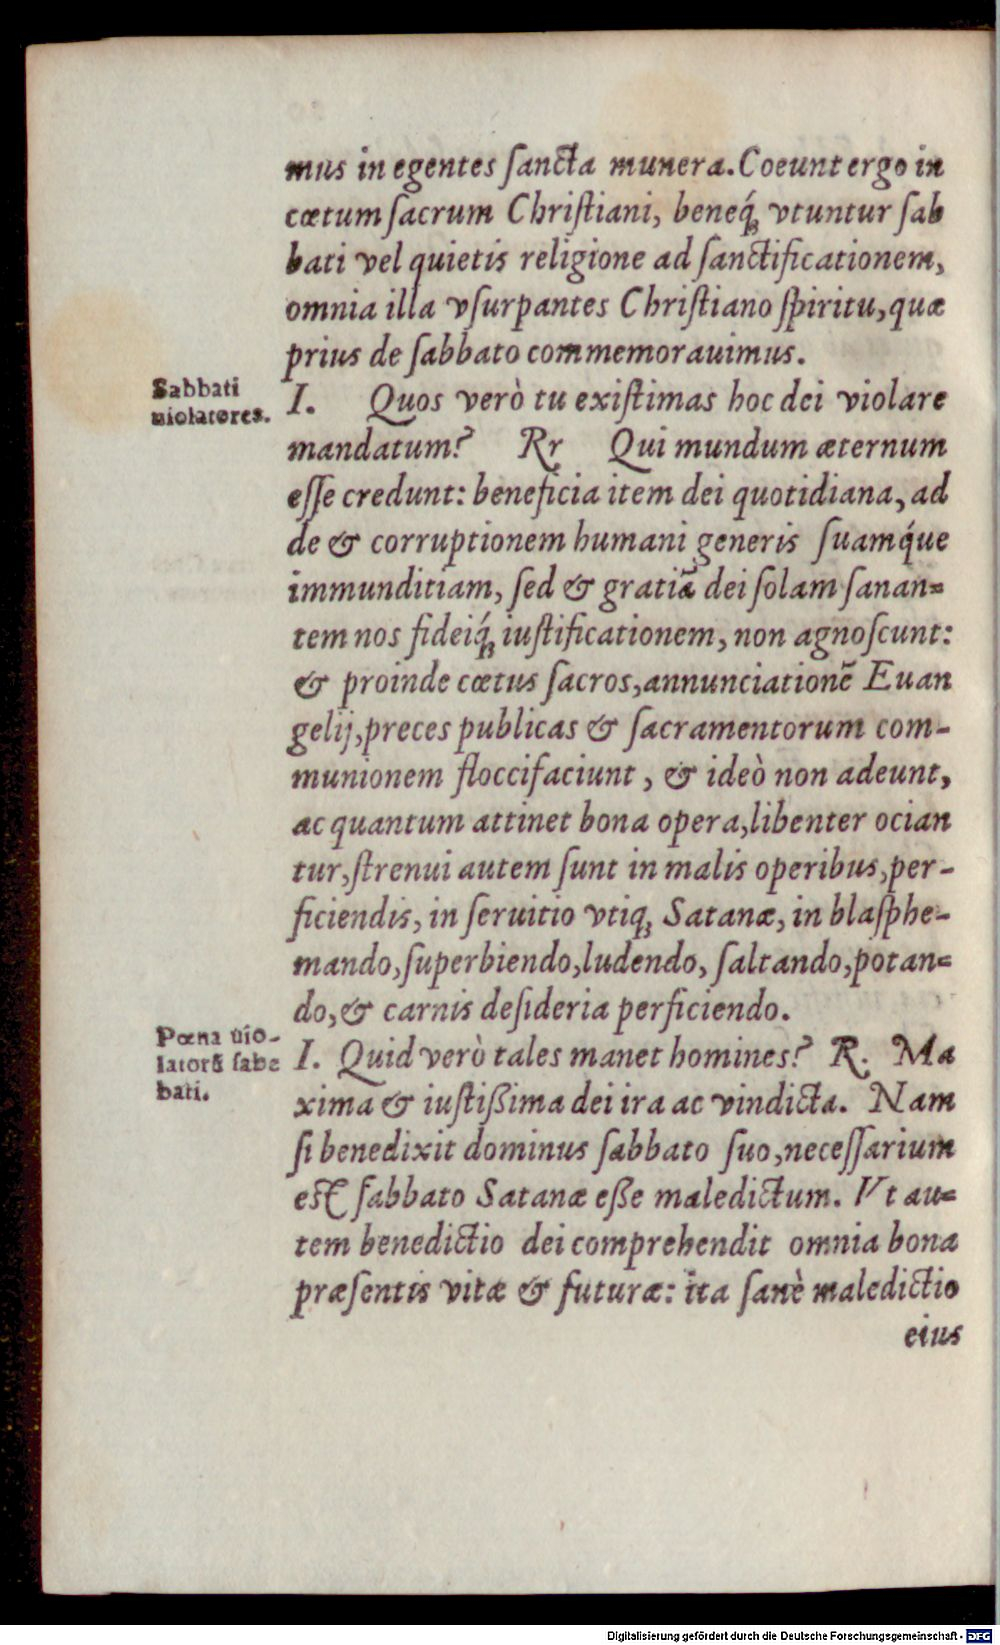 mus in egentes ſancta munera. Coeunt ergo in
cœtum ſacrum Chriſtiani, beneq́ꝫ vtuntur ſab
bati vel quietis religione ad ſanctificationem,
omnia illa vſurpantes Chriſtiano ſpiritu, quæ
prius de ſabbato commemorauimus.
Sabbati
uiolatores.
I. Quos verò tu exiſtimas hoc dei violare
mandatum? Rr Qui mundum æternum
eſſe credunt: beneficia item dei quotidiana, ad
de & corruptionem humani generis ſuamq́ue
immunditiam, ſed & gratiã dei ſolam ſanan=
tem nos fideiq́ꝫ iuſtificationem, non agnoſcunt:
& proinde cœtus ſacros, annunciationẽ Euan
gelij, preces publicas & ſacramentorum com-
munionem floccifaciunt, & ideò non adeunt,
ac quantum attinet bona opera, libenter ocian
tur, ſtrenui autem ſunt in malis operibus, per-
ficiendis, in ſeruitio vtiqꝫ Satanæ, in blaſphe-
mando, ſuperbiendo, ludendo, ſaltando, potan=
do, & carnis deſideria perficiendo.
Pœna uio-
latorũ ſabe
bati.
I. Quid verò tales manet homines? R. Ma
xima & iuſtißima dei ira ac vindicta. Nam
ſi benedixit dominus ſabbato ſuo, neceſſarium
eſt ſabbato Satanæ eße maledictum. Vt au=
tem benedictio dei comprehendit omnia bona
præſentis vitæ & futuræ: ita ſanè maledictio
eius
Digitalisierung gefördert durch die Deutsche Forschungsgemeinschaft - DFG